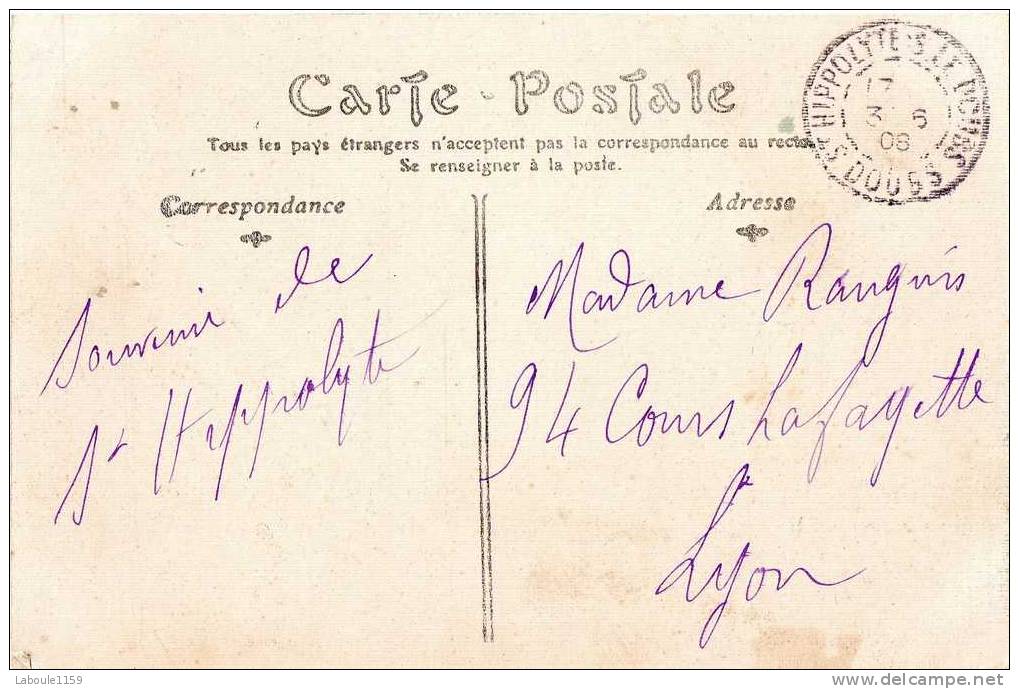 Carte - Postale
Tous les pays étrangers n'acceptent pas la correspondance au recto
Se renseigner à la poste.
Correspondance
Adresse
Souvenir de
St Hippolyte
Madame Ranguis
94 Cours Lafayette
Lyon
ST HIPPOLYTE S. LE DOUBS
DOUBS
17
3 6
08
Laboule1159
delcampe.net